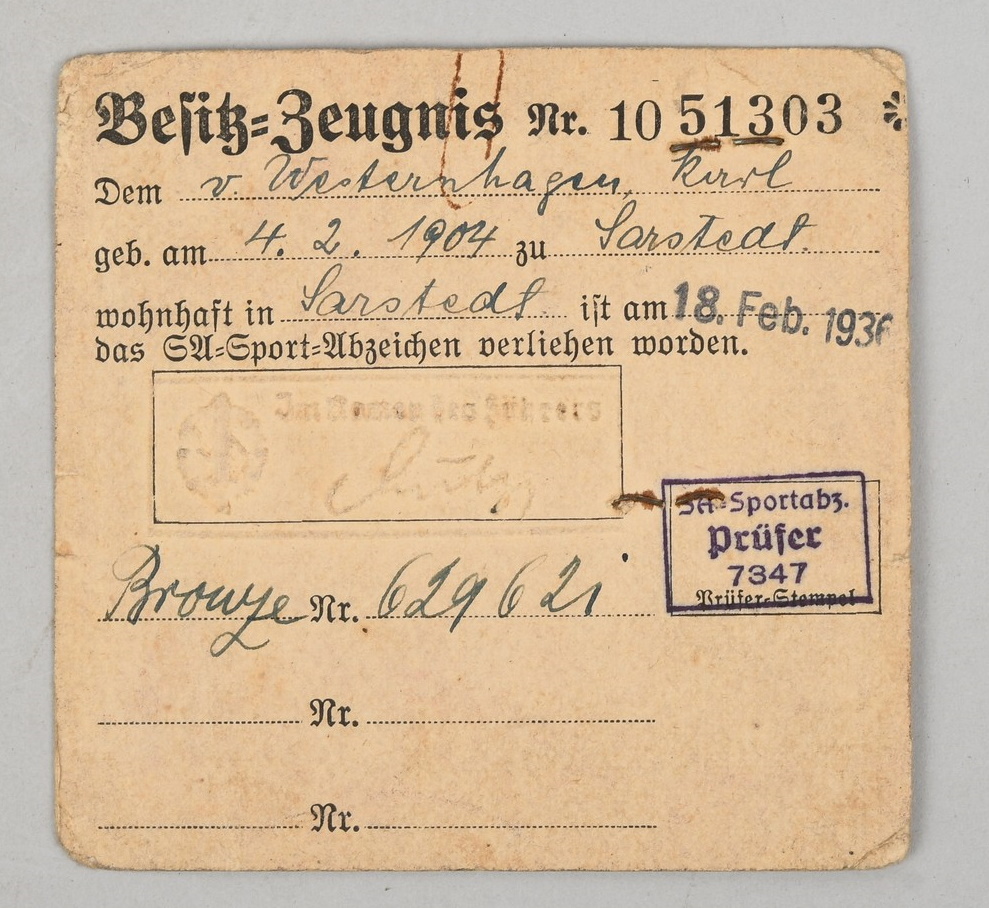 Besitz-Zeugnis Nr. 1051303
Dem v. Westernhagen, Karl
geb. am 4. 2. 1904 zu Sarstedt.
wohnhaft in Sarstedt. ist am 18. Feb. 1936
das SA-Sport-Abzeichen verliehen worden.
Im Namen des Führers
SA-Sportabz.
Prüfer
7347
Prüfer-Stempel
Bronze Nr. 629621
Nr.
Nr.